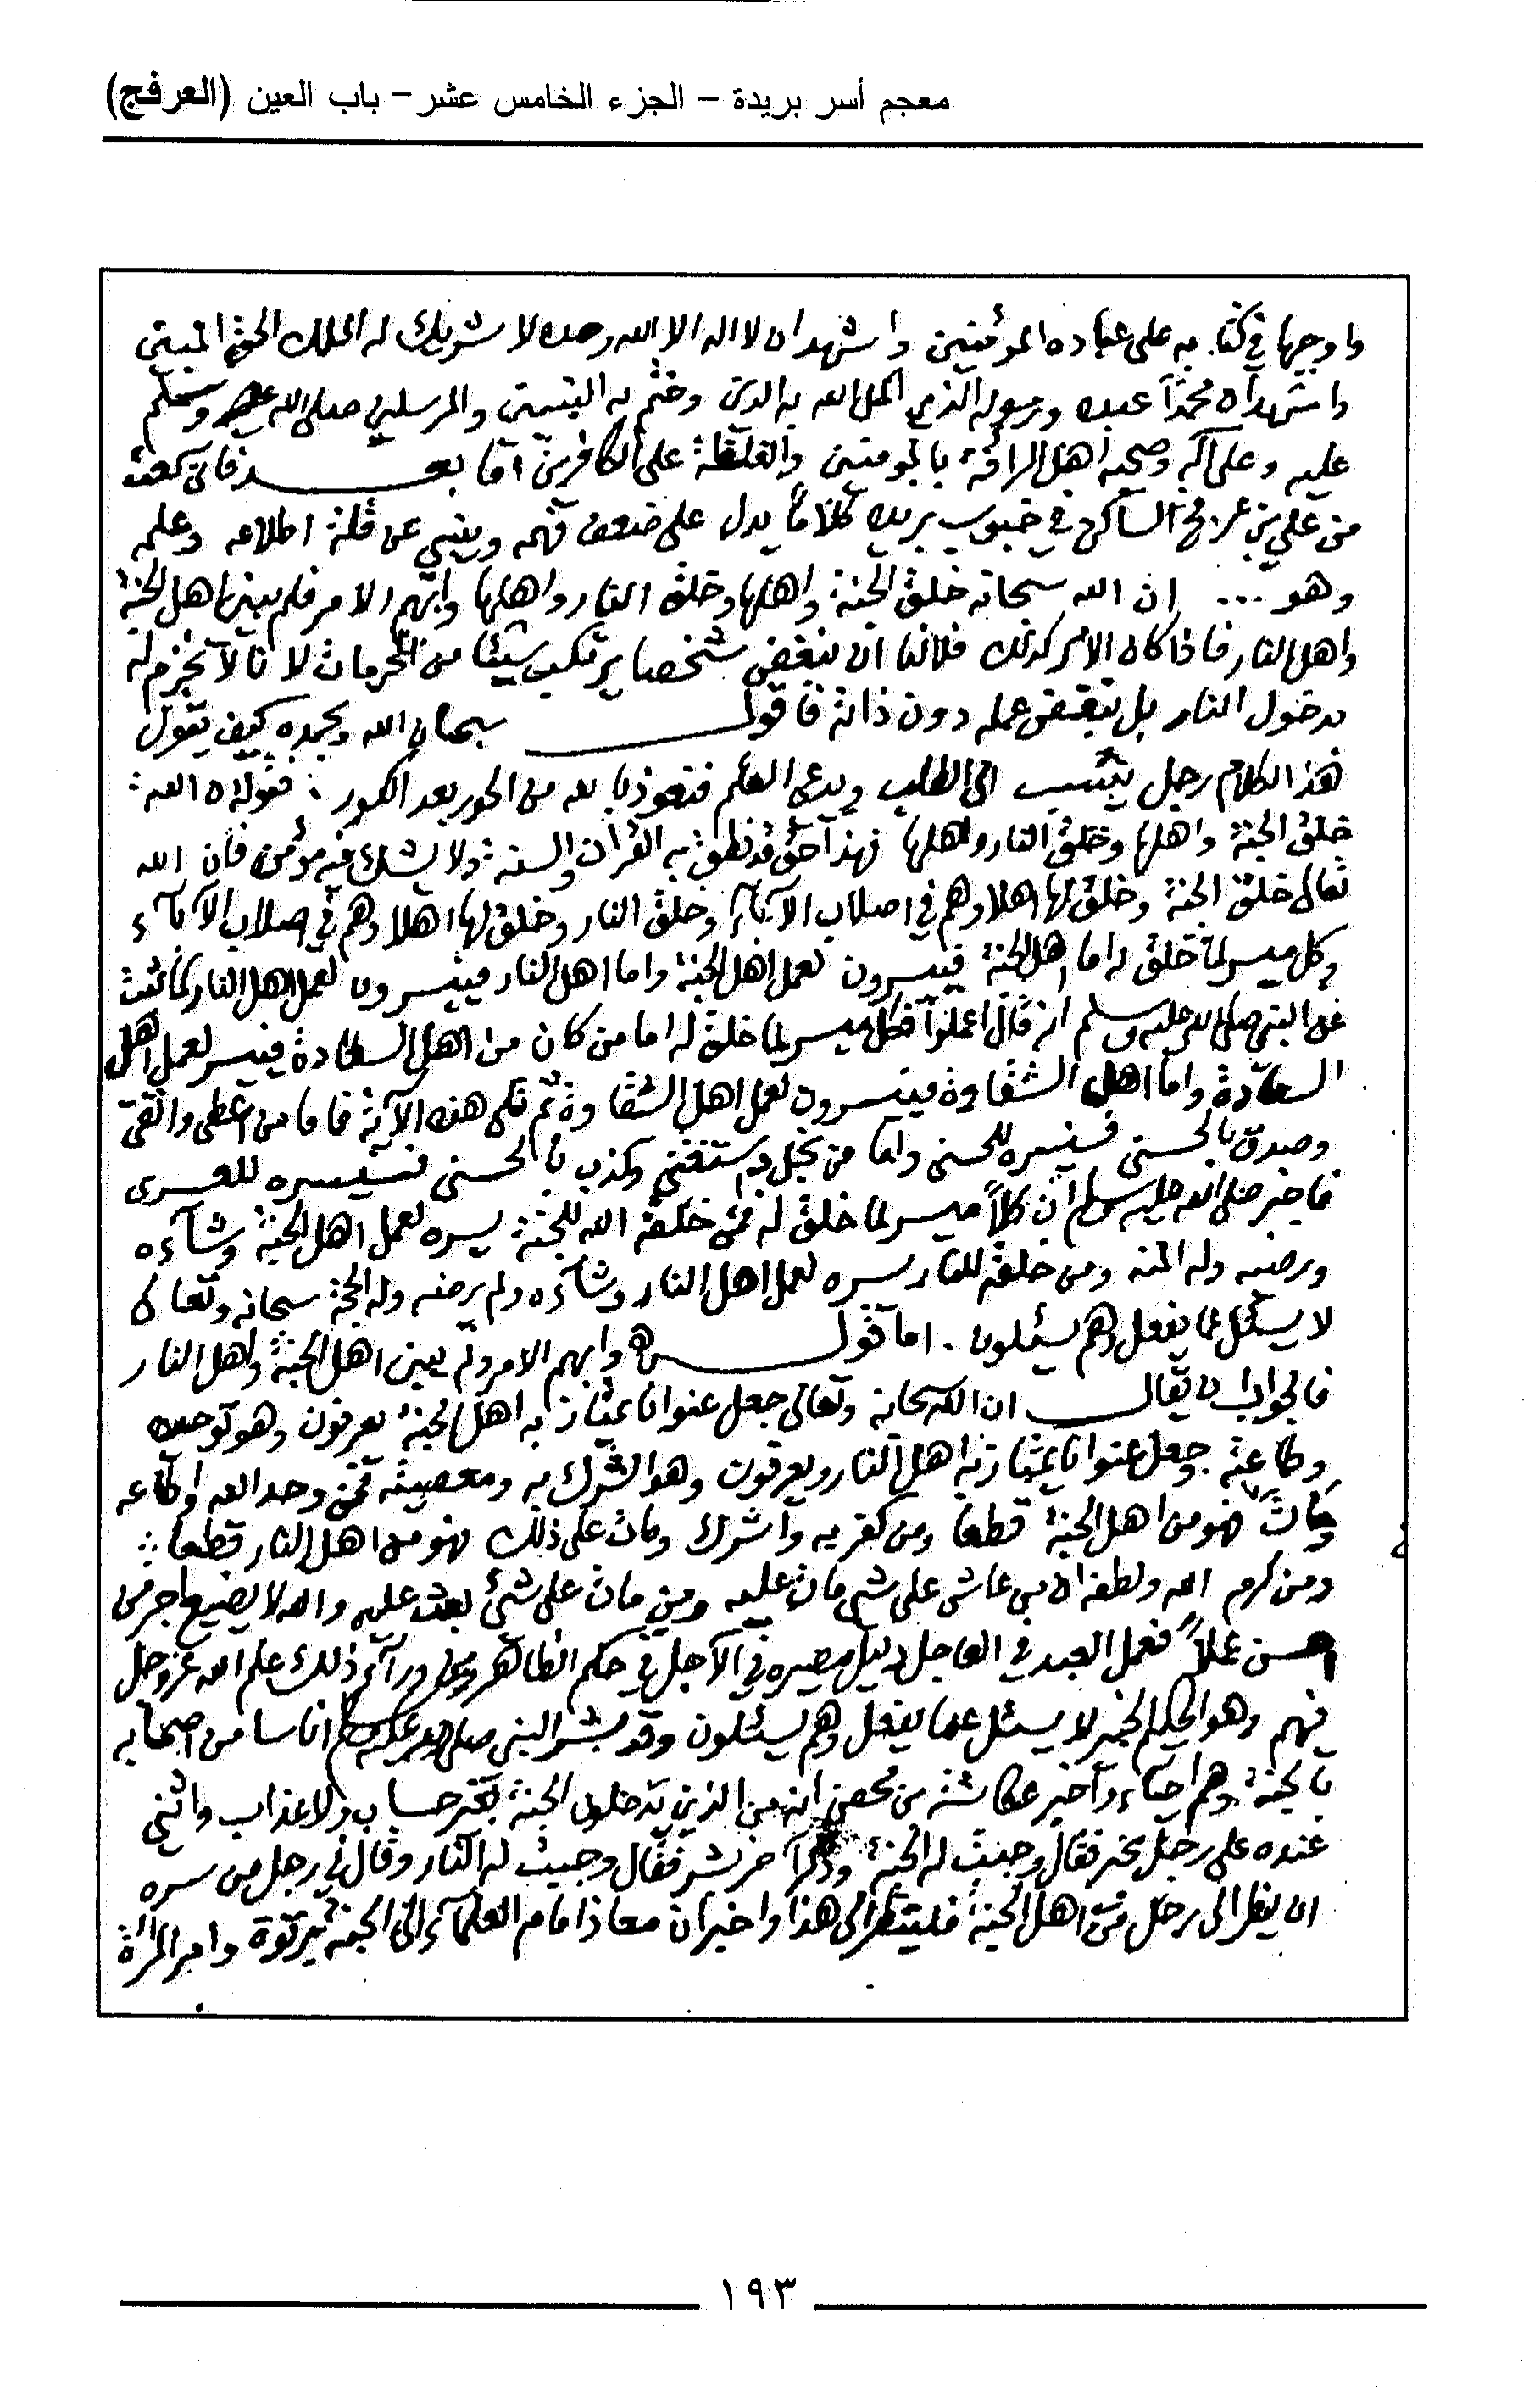 معجم أسر بريدة – الجزء الخامس عشر – باب العين (العرفج)
واوجبها في كتابه على عباده المؤمنين واشهد ان لا اله الا الله وحده لا شريك له الملك الحق المبين
واشهد ان محمداً عبده ورسوله الذي اكمل الله به الدين وختم به النبيين والمرسلين صلى الله وسلم
عليه وعلى آله وصحبه اهل الرأفة بالمومنين والغلظة على الكافرين اما بعد فاني سمعت
من علي بن عرفج الساكن في خبوب بريده كلاماً يدل على ضعف فهمه وينبي عن قلة اطلاعه وعلمه
وهو ... ان الله سبحانه خلق الجنة واهلها وخلق النار واهلها وابهم الامر فلم يبين اهل الجنة
واهل النار فاذا كان الامر كذلك فلا لنا ان نبغض شخصا يرتكب شيئا من المحرمات لانا لا نجزم له
بدخول النار بل نبغض عمله دون ذاته فاقول سبحان الله وبحمده كيف يقول
هذا الكلام رجل ينتسب الى الطلب ويدعي العلم فنعوذ بالله من الحور بعد الكور : فقوله ان الله :
خلق الجنة واهلها وخلق النار واهلها فهذا حق قد نطق به القرآن والسنة ولا يشك فيه مؤمن فان الله
تعالى خلق الجنة وخلق لها اهلا وهم في اصلاب الآبآء وخلق النار وخلق لها اهلا وهم في اصلاب الآبآء
وكل ميسر لما خلق له اما اهل الجنة فييسرون لعمل اهل الجنة واما اهل النار فييسرون لعمل اهل النار كما ثبت
عن النبي صلى الله عليه وسلم انه قال اعملوا فكل ميسر لما خلق له اما من كان من اهل السعادة فييسر لعمل اهل
السعادة واما اهل الشقاوة فييسرون لعمل اهل الشقاوة ثم تلى هذه الآية فاما من اعطى واتقى
وصدق بالحسنى فسنيسره لليسرى واما من بخل واستغنى وكذب بالحسنى فسنيسره للعسرى
فاخبر صلى الله عليه وسلم ان كلاً ميسر لما خلق له فمن خلقه الله للجنة يسره لعمل اهل الجنة وشآءه
ورضيه وله المنه ومن خلقه للنار يسره لعمل اهل النار وشآءه ولم يرضه وله الحجة سبحانه وتعالى
لا يسئل عما يفعل وهم يسئلون . اما قوله وابهم الامر ولم يبين اهل الجنة واهل النار
فالجواب ان يقال ان الله سبحانه وتعالى جعل عنوانا يمتاز به اهل الجنة يعرفون وهو توحيده
وطاعته وجعل عنوانا يمتاز به اهل النار ويعرفون وهو الشرك به ومعصيته فمن وحد الله واطاعه
ومات فهو من اهل الجنة قطعا ومن كفر به وأشرك ومات على ذلك فهو من اهل النار قطعا :
ومن كرم الله ولطفه ان من عاش على شي مات عليه ومن مات على شئ بعث عليه والله لا يضيع اجر من
احسن عملاً فعمل العبد في العاجل دليل مصيره في الآجل في حكم الظاهر ومن ورآء ذلك علم الله عز وجل
فيهم وهو الحكيم الخبير لا يسئل عما يفعل وهم يسئلون وقد بشر النبي صلى الله عليه وسلم اناسا من اصحابه
بالجنة وهم احيآء وأخبر عكاشة بن محصن انه من الذين يدخلون الجنة بغير حساب ولا عذاب واثني
عنده على رجل بخير فقال وجبت له الجنة وذكر آخر بشر فقال وجبت له النار وقال في رجل من سره
ان ينظر الى رجل من اهل الجنة فلينظر الى هذا واخبر ان معاذا امام العلمآء الى الجنة برتوة وامر المرأة
١٩٣